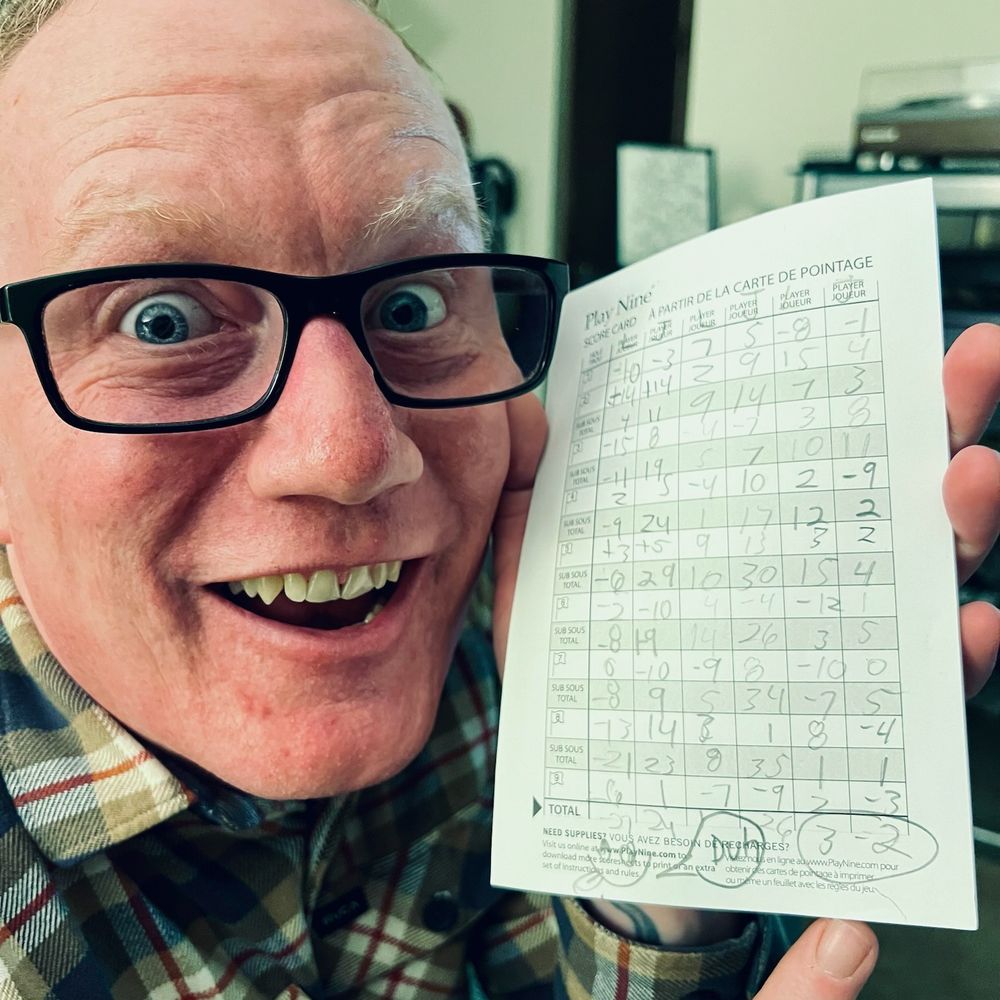 Play Nine
SCORE CARD À PARTIR DE LA CARTE DE POINTAGE
HOLE TROU PLAYER JOUEUR PLAYER JOUEUR PLAYER JOUEUR PLAYER JOUEUR PLAYER JOUEUR PLAYER JOUEUR
1 -10 -3 7 5 -8 -1
2 +14 +14 2 9 15 4
SUB SOUS TOTAL 4 11 9 14 7 3
3 -15 8 -4 -7 3 8
SUB SOUS TOTAL -11 19 5 7 10 11
4 2 5 -4 10 2 -9
SUB SOUS TOTAL -9 24 1 17 12 2
5 +3 +5 9 13 3 2
SUB SOUS TOTAL -6 29 10 30 15 4
6 -2 -10 4 -4 -12 1
SUB SOUS TOTAL -8 19 14 26 3 5
7 0 -10 -9 8 -10 0
SUB SOUS TOTAL -8 9 5 34 -7 5
8 -13 14 3 1 8 -4
SUB SOUS TOTAL -21 23 8 35 1 1
9 1 -7 -9 2 -3
TOTAL 24 26 3 -2
NEED SUPPLIES? VOUS AVEZ BESOIN DE RECHARGES?
Visit us online at www.PlayNine.com to
download more scoresheets to print or an extra
set of instructions and rules.
en ligne au www.PlayNine.com pour
obtenir des cartes de pointage à imprimer
ou même un feuillet avec les règles du jeu.